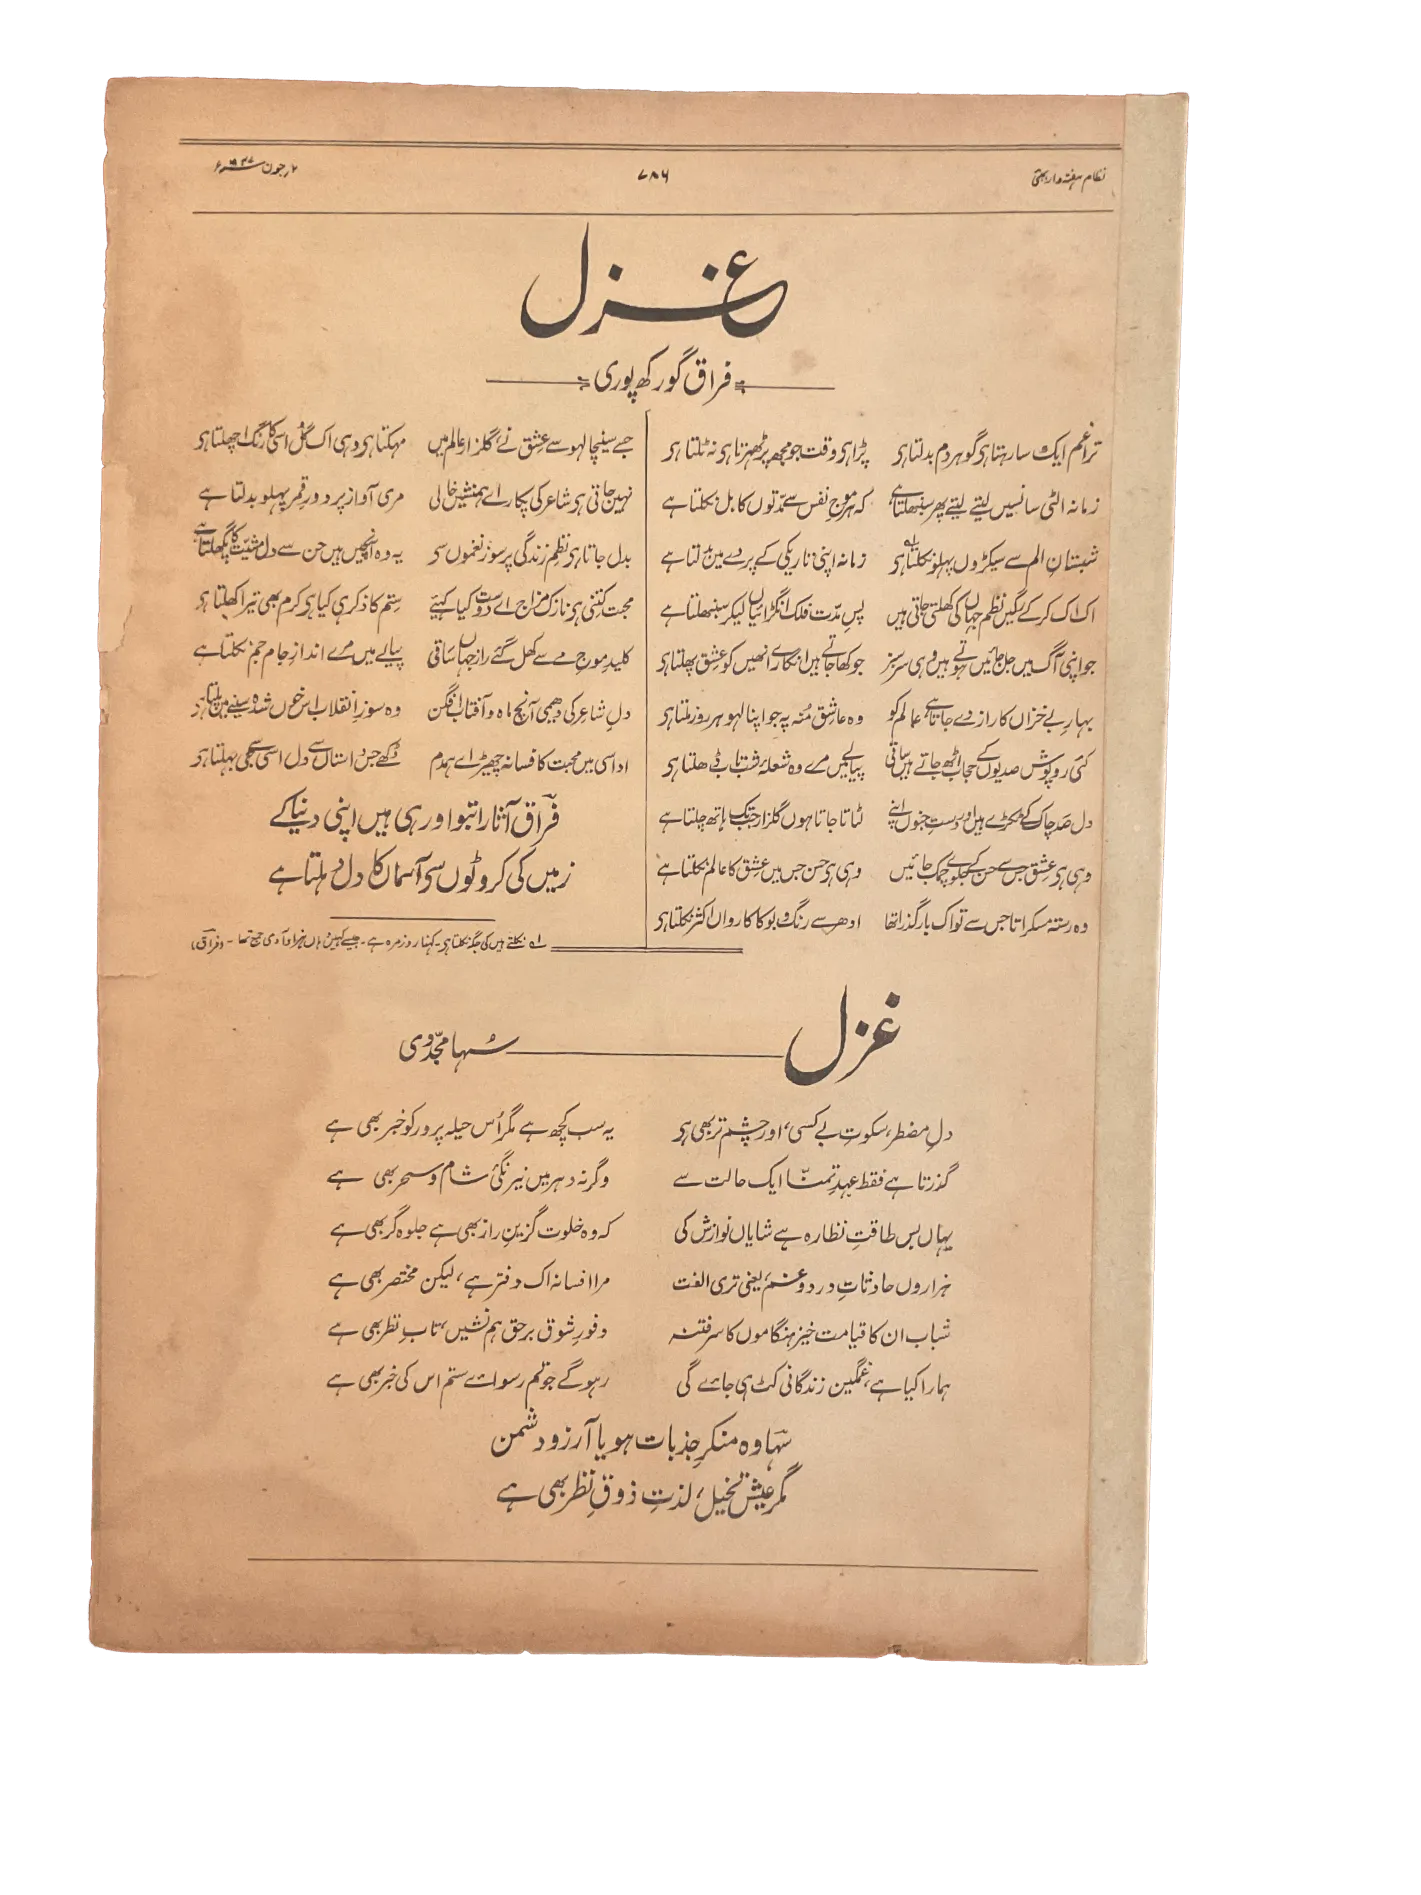 نظام ہفتہ وار بمبئی
۷۸۶
۲ جون ۱۹۴۷ء
غزل
فراق گورکھپوری
ترا غم ایک سا رہتا ہی گو ہر دم بدلتا ہی پڑا ہی وقت جو مجھ پر ٹھہرتا ہی نہ ٹلتا ہی
زمانہ الٹی سانسیں لیتے لیتے پھر سنبھلتا ہے کہ ہر موجِ نفس سے مدّتوں کا بل نکلتا ہے
شبستانِ الم سے سیکڑوں پہلو نکلتا ہی زمانہ اپنی تاریکی کے پردے میں بدلتا ہے
اک اک کر کے نظم جہاں کی کھلتی جاتی ہیں پسِ مدّت فلک انگڑائیاں لیکر سنبھلتا ہے
جو اپنی آگ میں جل جائیں ہوتے ہیں وہی سرسبز جو کھا جاتے ہیں انگارے انھیں کو عشق پھلتا ہی
بہارِ بے خزاں کا راز دے جاتا ہے عالم کو وہ عاشق منہ پہ جو اپنا لہو ہر روز ملتا ہی
کئی روپوش صدیوں کے حجاب اٹھ جاتے ہیں ساقی پیالے میں مرے وہ شعلۂ شب تاب ڈھلتا ہی
دل صد چاک کے ٹکڑے ہیں اور دستِ جنوں اپنے لٹاتا جاتا ہوں گلزار جب تک ہاتھ چلتا ہے
وہی ہی عشق جس سے حسن کے جلوے چمک جائیں وہی ہی حسن جس میں عشق کا عالم نکلتا ہے
وہ رستہ مسکراتا جس سے تو اک بار گذرا تھا ادھر سے رنگ و بو کا کارواں اکثر نکلتا ہی
جسے سینچا لہو سے عشق نے گلزارِ عالم میں مہکتا ہی وہی اک گل اسی کا رنگ اچھلتا ہی
نہیں جاتی ہی شاعر کی پکار اے ہمنشیں خالی مری آواز پر دورِ قمر پہلو بدلتا ہے
بدل جاتا ہی نظمِ زندگی پر سوز نغموں سی یہ وہ آنچیں ہیں جن سے دل مشیّت کا پگھلتا ہے
محبت کتنی ہی نازک مزاج اے دوست کیا کہیئے ستم کا ذکر ہی کیا ہی کرم بھی تیرا کھلتا ہی
کلیدِ موجِ مے سے کھل گئے رازِ جہاں ساقی پیالے میں مرے اندازِ جامِ جم نکلتا ہے
دلِ شاعر کی دھیمی آنچ ماہ و آفتاب افگن وہ سوزِ انقلاب اس خوں شدہ سینے میں پلتا ہی
اداسی میں محبت کا فسانہ چھیڑ اے ہمدم دکھے جس داستاں سے دل اسی سے جی بہلتا ہی
فراق آثار اتبو اور ہی ہیں اپنی دنیا کے
زمیں کی کروٹوں سی آسماں کا دل دہلتا ہے
۱ے نکلتے ہیں کی جگہ نکلتا ہی۔ کہنا روزمرہ ہے۔ جیسے کہیں ہاں ہزار آدمی جمع تھا۔ (فراق)
غزل
سُہا مجدّدی
دلِ مضطر، سکوتِ بے کسی، اور چشم تر بھی ہی یہ سب کچھ ہے مگر اُس حیلہ پرور کو خبر بھی ہے
گذرتا ہے فقط عہدِ تمنّا ایک حالت سے وگرنہ دہر میں نیرنگئ شام و سحر بھی ہے
یہاں بس طاقتِ نظارہ ہے شایاں نوازش کی کہ وہ خلوت گزینِ راز بھی ہے جلوہ گر بھی ہے
ہزاروں حادثاتِ درد و غم، یعنی تری الفت مرا افسانہ اک دفتر ہے، لیکن مختصر بھی ہے
شباب ان کا قیامت خیز ہنگاموں کا سر فتنہ وفورِ شوق برحق ہم نشیں، تابِ نظر بھی ہے
ہمارا کیا ہے، غمگین زندگانی کٹ ہی جائے گی رہو گے جو تم رسوائے ستم اس کی خبر بھی ہے
سہا وہ منکرِ جذبات ہو یا آرزو دشمن
مگر عیشِ تخیل، لذتِ ذوقِ نظر بھی ہے